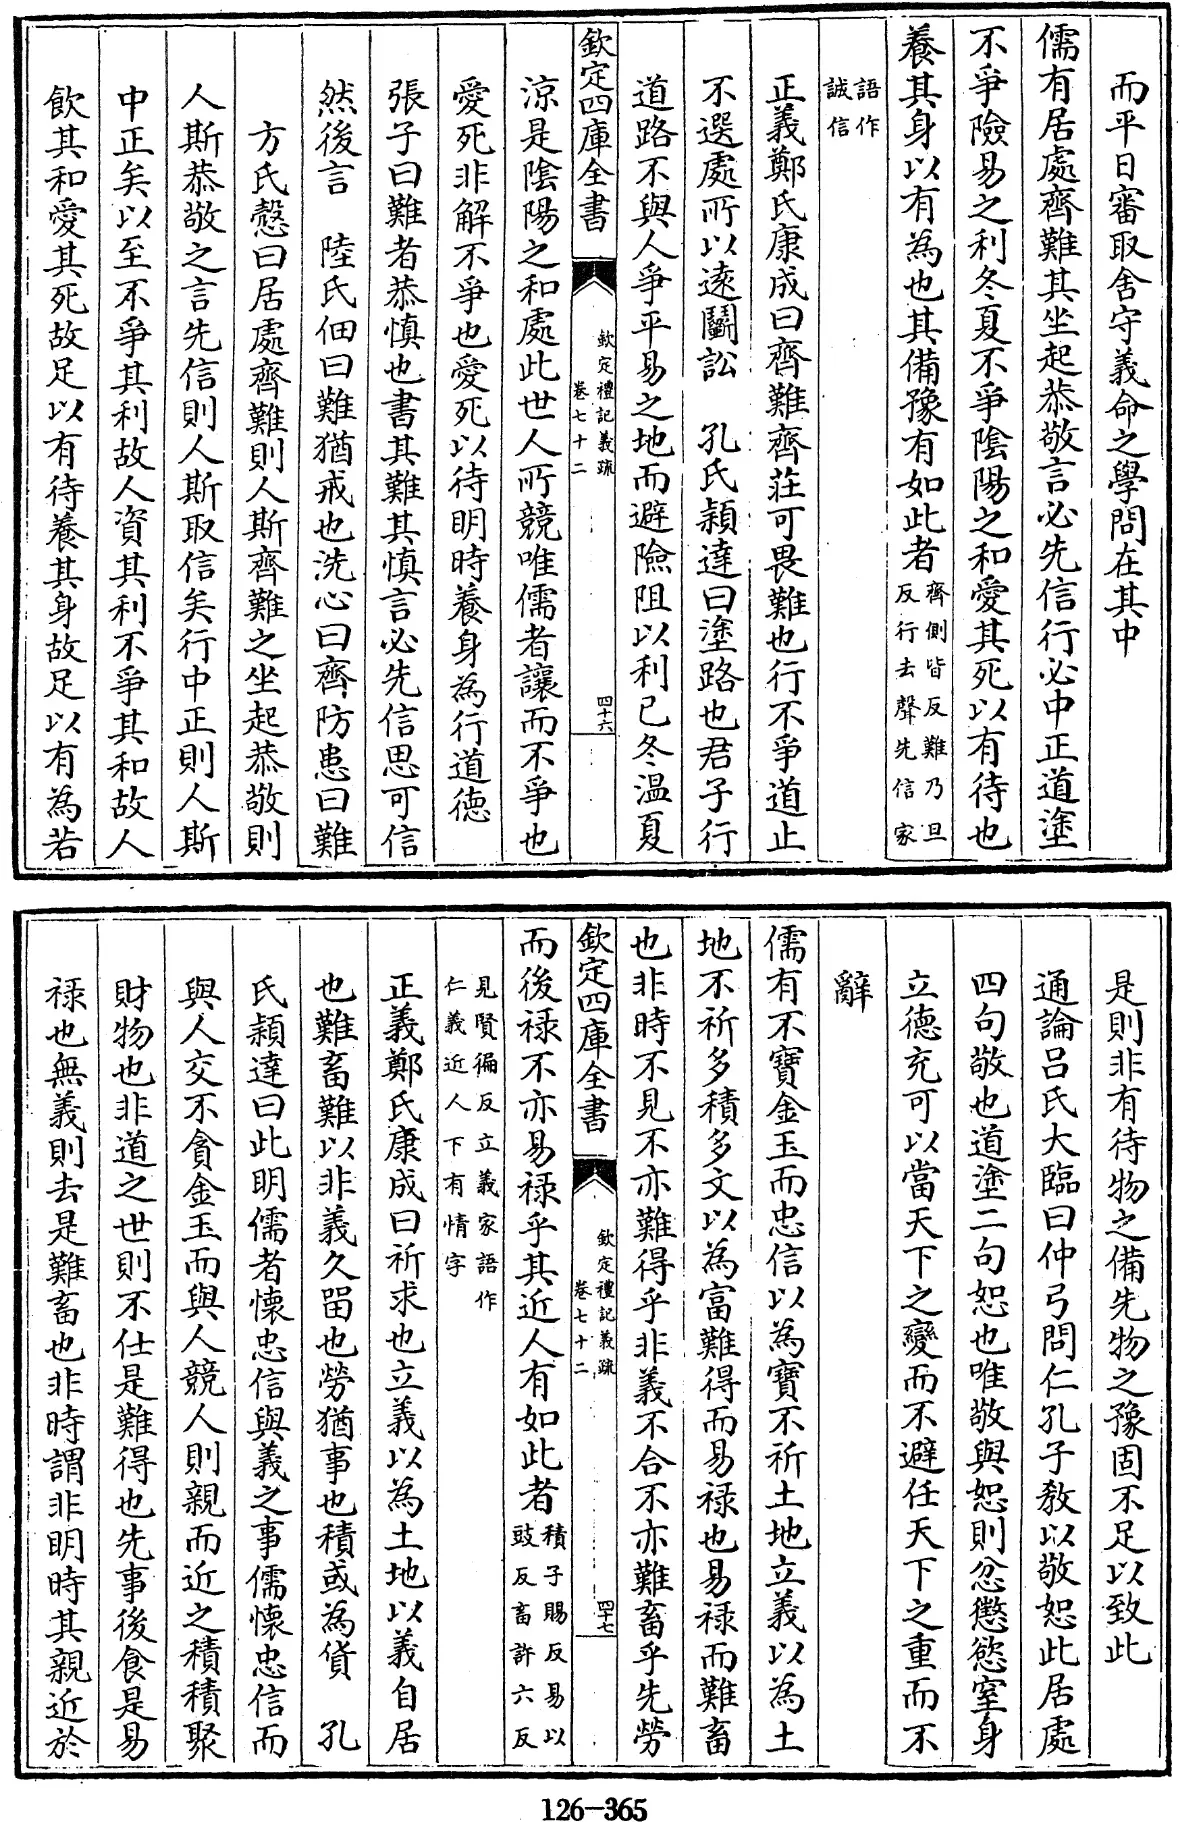 而平日審取舍守義命之學問在其中
儒有居處齊難其坐起恭敬言必先信行必中正道塗
不爭險易之利冬夏不爭陰陽之和愛其死以有待也
養其身以有為也其備豫有如此者齊側皆反難乃旦
反行去聲先信家
語作
誠信
正義鄭氏康成曰齊難齊莊可畏難也行不爭道止
不選處所以遠鬭訟　孔氏穎達曰塗路也君子行
道路不與人爭平易之地而避險阻以利已冬溫夏
欽定四庫全書
欽定禮記義疏
卷七十二
四十六
涼是陰陽之和處此世人所競唯儒者讓而不爭也
愛死非解不爭也愛死以待明時養身為行道德
張子曰難者恭慎也書其難其慎言必先信思可信
然後言　陸氏佃曰難猶戒也洗心曰齊防患曰難
方氏慤曰居處齊難則人斯齊難之坐起恭敬則
人斯恭敬之言先信則人斯取信矣行中正則人斯
中正矣以至不爭其利故人資其利不爭其和故人
飲其和愛其死故足以有待養其身故足以有為若
是則非有待物之備先物之豫固不足以致此
通論呂氏大臨曰仲弓問仁孔子教以敬恕此居處
四句敬也道塗二句恕也唯敬與恕則忿懲慾窒身
立德充可以當天下之變而不避任天下之重而不
辭
儒有不寶金玉而忠信以為寶不祈土地立義以為土
地不祈多積多文以為富難得而易祿也易祿而難畜
也非時不見不亦難得乎非義不合不亦難畜乎先勞
欽定四庫全書
欽定禮記義疏
卷七十二
四十七
而後祿不亦易祿乎其近人有如此者積子賜反易以
豉反畜許六反
見賢徧反立義家語作
仁義近人下有情字
正義鄭氏康成曰祈求也立義以為土地以義自居
也難畜難以非義久留也勞猶事也積或為貨　孔
氏穎達曰此明儒者懷忠信與義之事儒懷忠信而
與人交不貪金玉而與人競人則親而近之積積聚
財物也非道之世則不仕是難得也先事後食是易
祿也無義則去是難畜也非時謂非明時其親近於
126-365